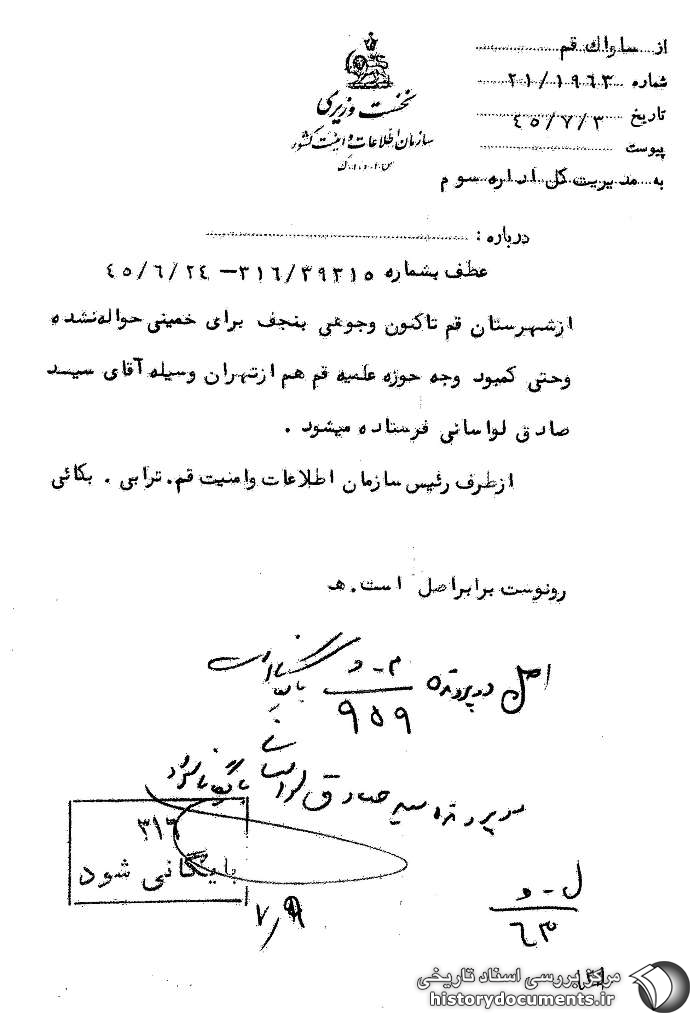 از ساواك قم
شماره ۲۱/۱۹٦۳
تاریخ ٤٥/۷/۳
پیوست
به مدیریت کل اداره سوم
نخست وزیری
سازمان اطلاعات و امنیت کشور
س.ا.و.ا.ک
درباره :
عطف بشماره ۳۱٦/۳۹۳۱٥ — ٤٥/٦/۲٤
ازشهرستان قم تاکنون وجوهی بنجف برای خمینی حواله نشده
وحتی کمبود وجه حوزه علمیه قم هم ازتهران وسیله آقای سیسد
صادق لواسانی فرستاده میشود .
ازطرف رئیس سازمان اطلاعات وامنیت قم. ترابی . بکائی
رونوست برابراصل است. هـ
اصل در پرونده م - و
۹٥۹
در پرونده سید صادق لواسانی بایگانی شود
۳۱٦
بایگانی شود
ل - و
٦۳
مرکز بررسی اسناد تاریخی
historydocuments.ir